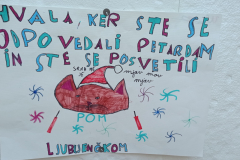 HVALA, KER STE SE
ODPOVEDALI PETARDAM
IN STE SE POSVETILI
MJAV MOV
MJAV
POM
LJUBLJENČKOM